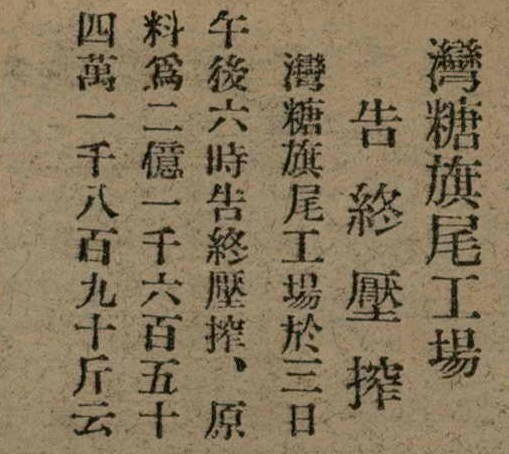 灣糖旗尾工場
告終壓搾
灣糖旗尾工場於三日
午後六時告終壓搾、原
料爲二億一千六百五十
四萬一千八百九十斤云